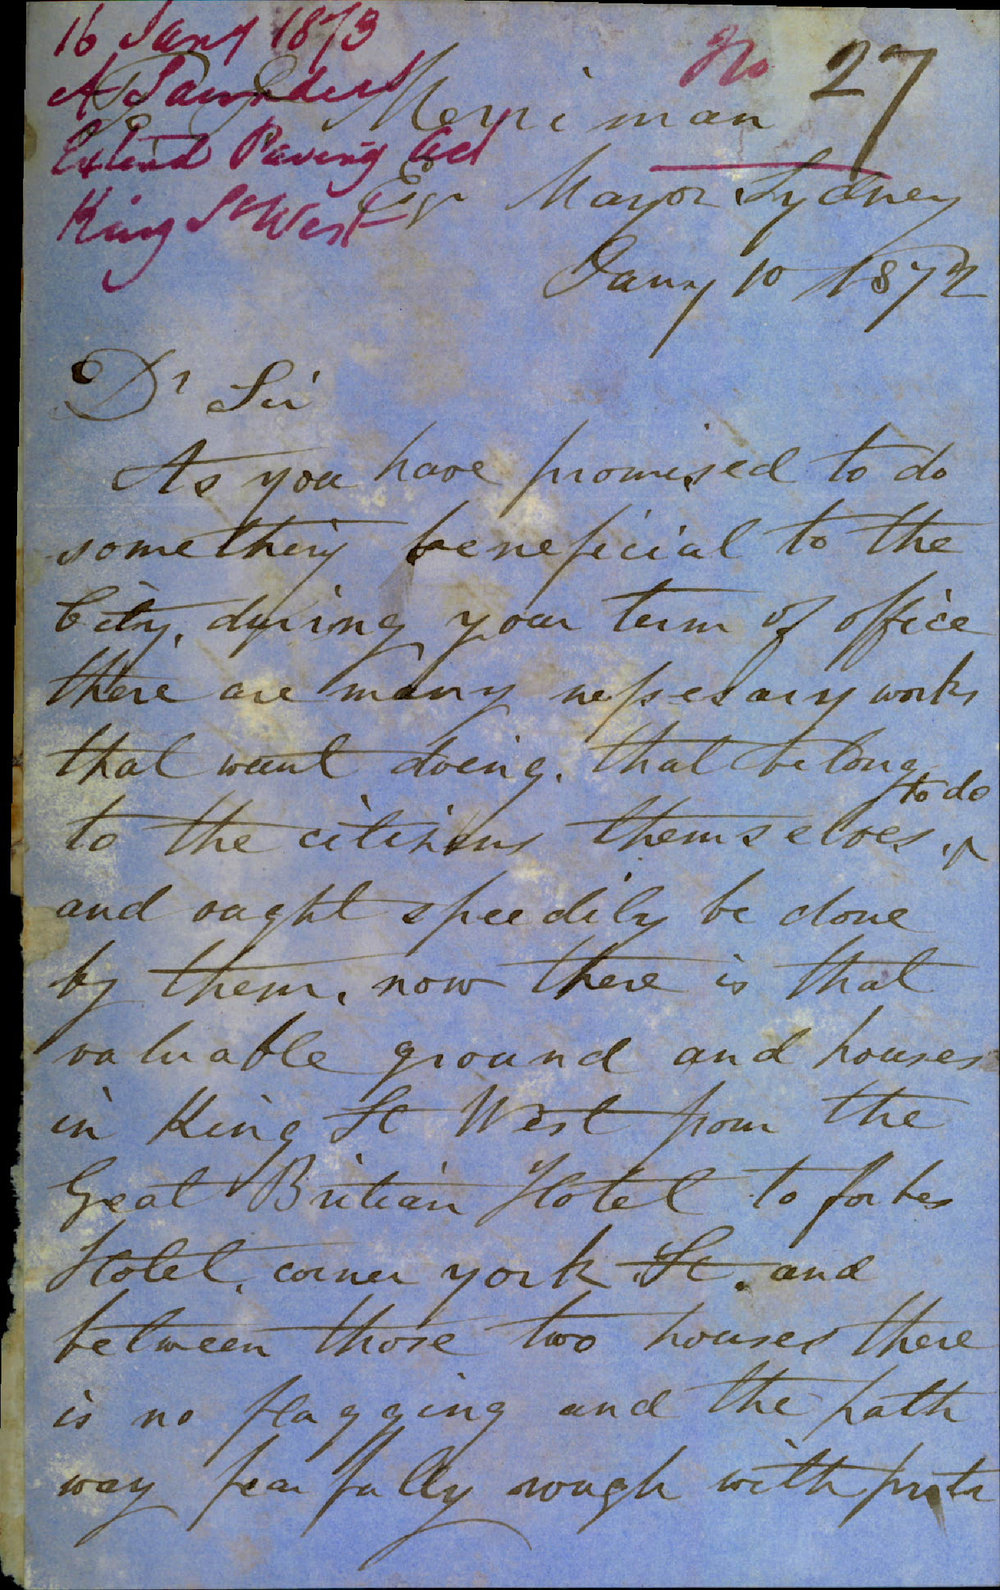 16 Jany 1873
No 27
A Saunders
Merriman
Extend Paving Act
Esqr Mayor Sydney
King St West
Jany 10 1873
Dr Sir
As you have promised to do
something beneficial to the
City, during your term of office
there are many nessesary works
that want doing. that belong
to the citizens themselves, to do
and ought speedily be done
by them, now there is that
valuable ground and houses
in King St West from the
Great Britian Hotel to forbes
Hotel, corner york St. and
between those two houses there
is no flagging and the path
way fearfully rough with